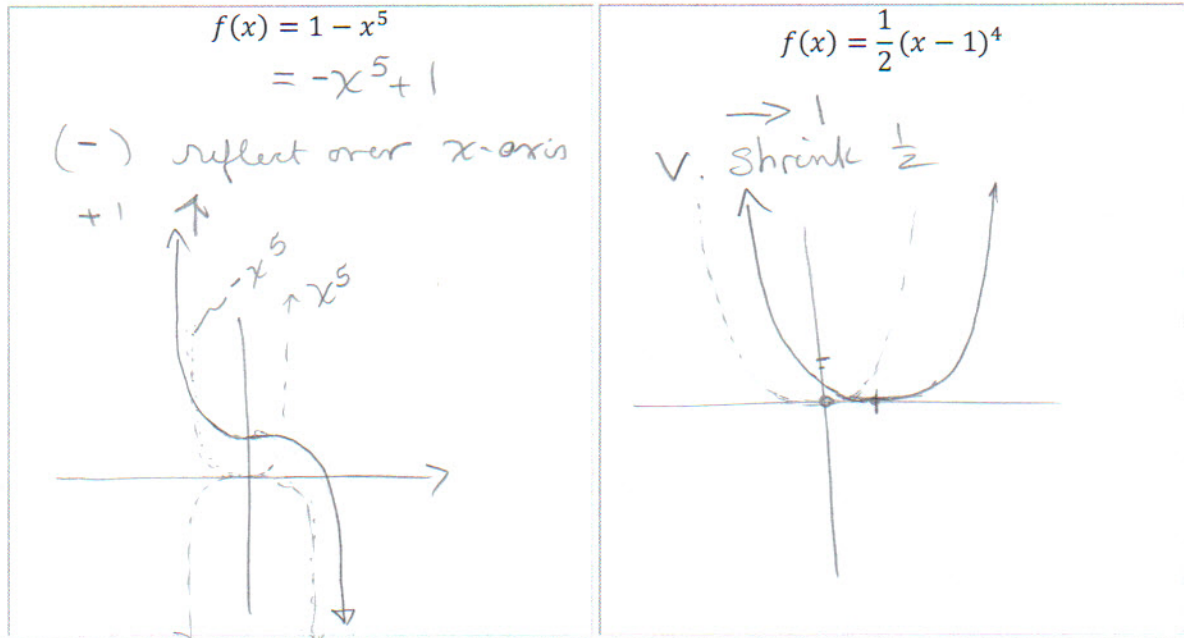 f(x) = 1 − x⁵
= -x⁵ + 1
(-) reflect over x-axis
+1 ↑
-x⁵
x⁵
f(x) = ½(x − 1)⁴
→ 1
V. Shrink ½